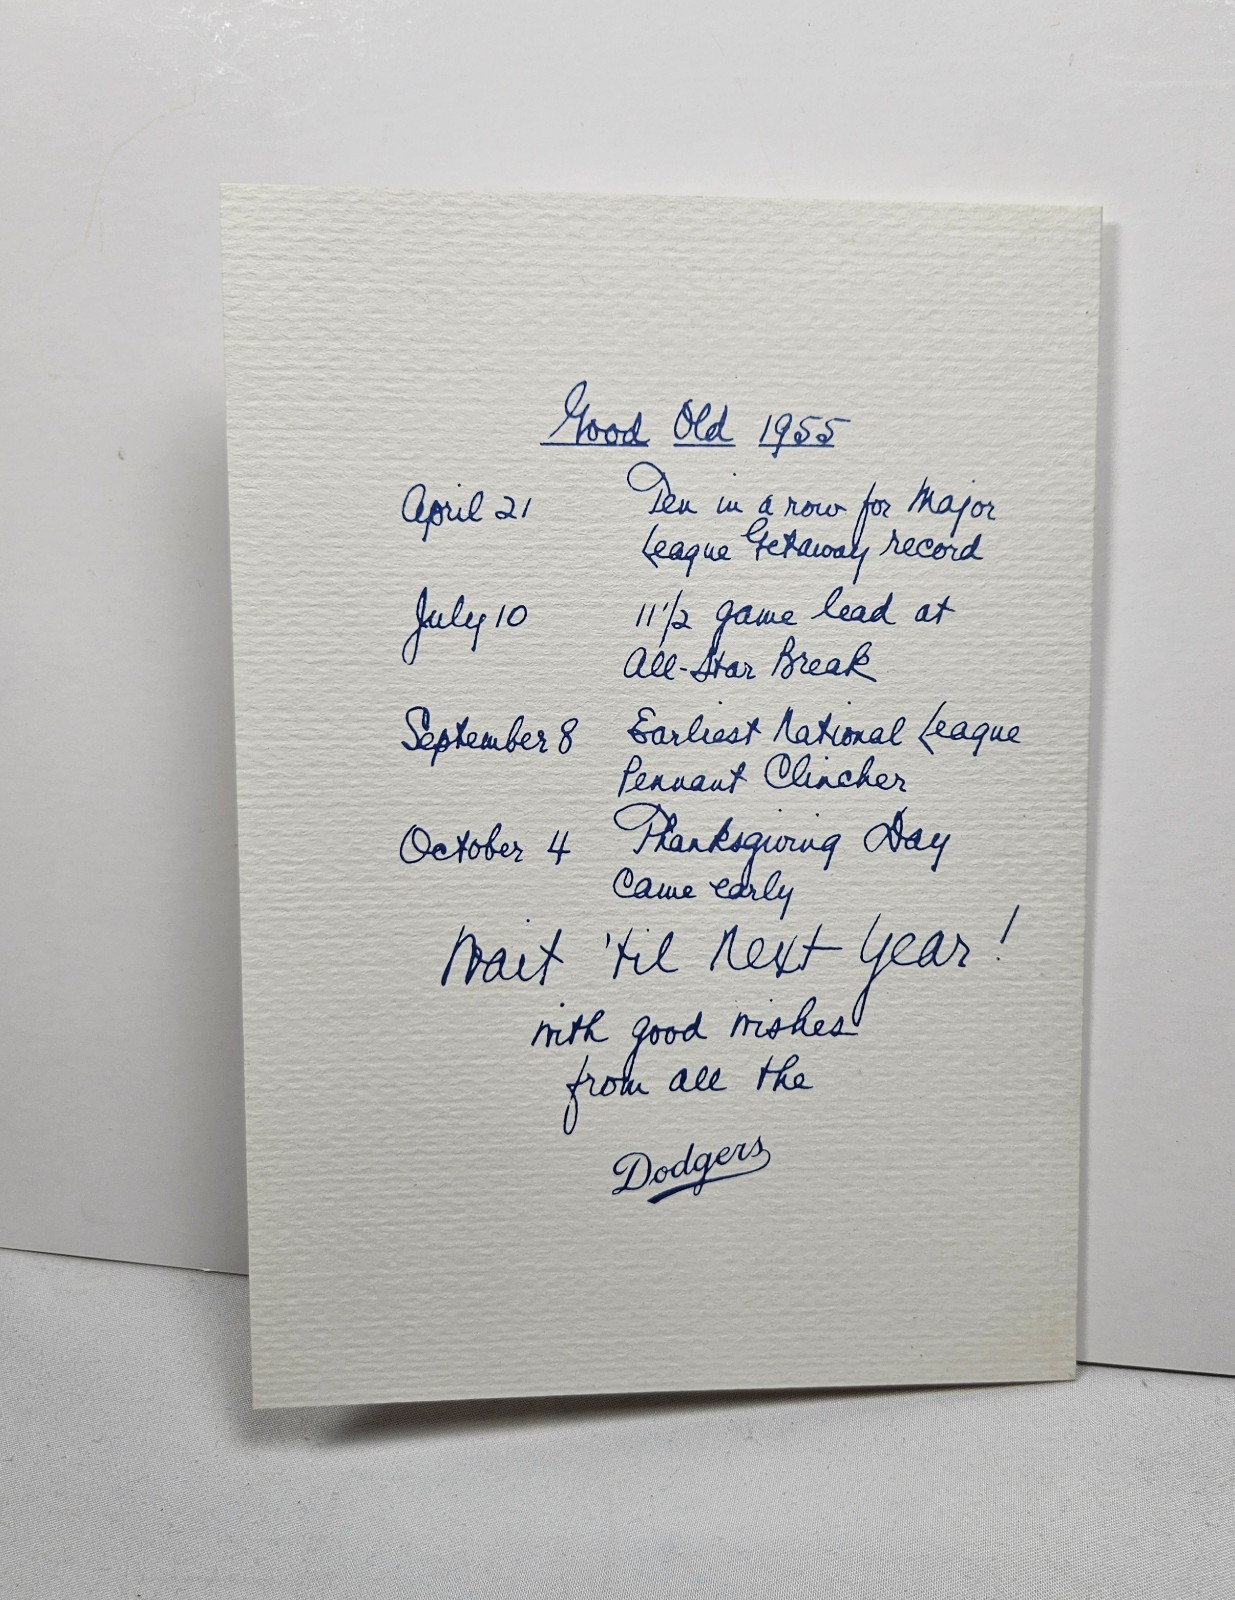 Good Old 1955
April 21 Ten in a row for Major
League Getaway record
July 10 11 1/2 game lead at
All-Star Break
September 8 Earliest National League
Pennant Clincher
October 4 Thanksgiving Day
Came early
Wait 'til Next Year!
with good wishes
from all the
Dodgers